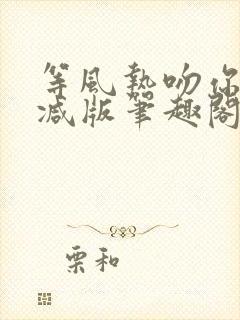 等風熱吻你
減版筆趣閣
栗和